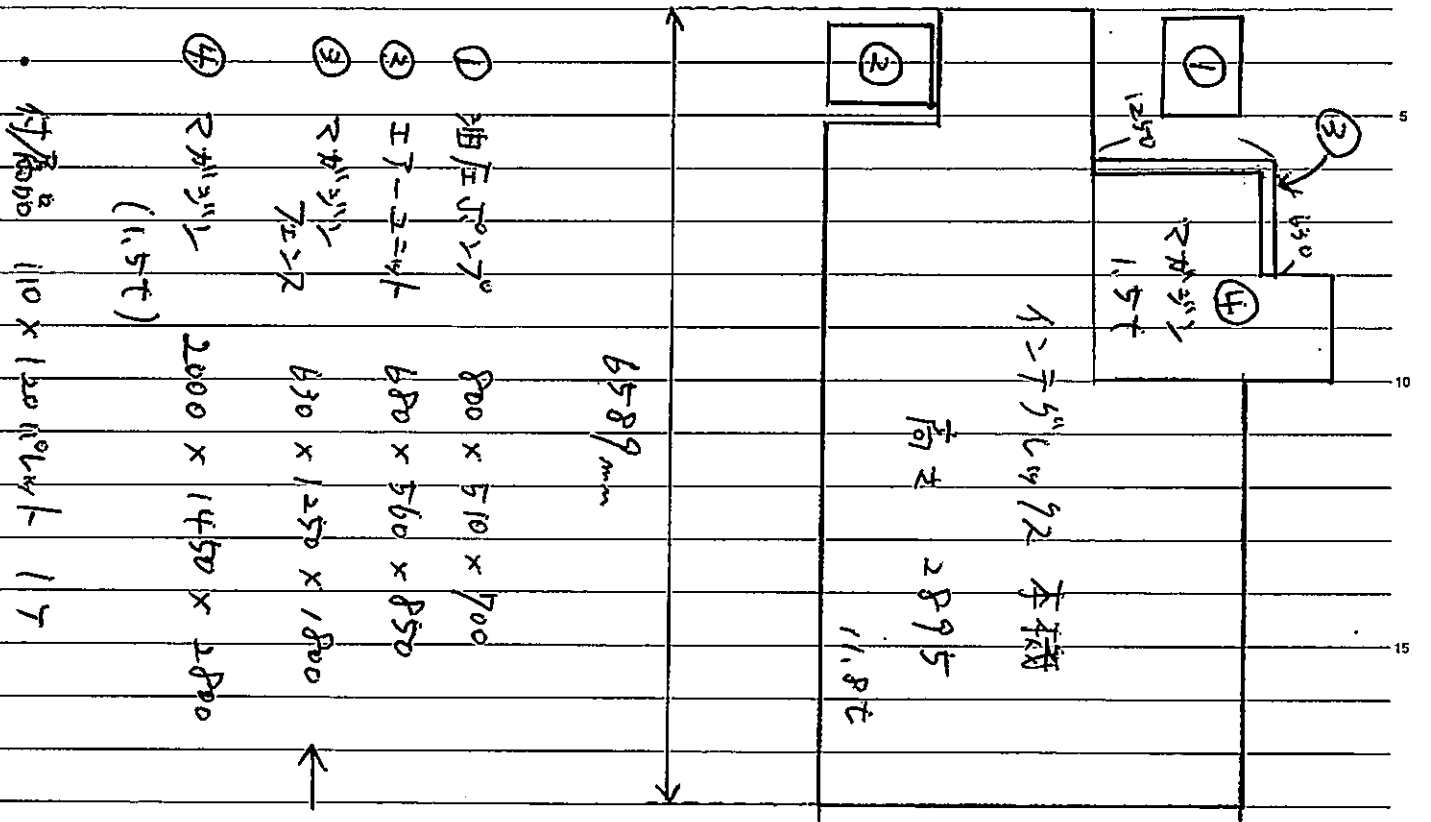 5
10
15
①
②
③
1250
630
④
マガジン
1.5t
インテグレックス 本機
高さ 2895
11.8t
6589mm
① 油圧ポンプ 800 × 510 × 700
② エアーユニット 680 × 560 × 850
③ マガジン
フェンス 630 × 1250 × 1800
④ マガジン 2000 × 1450 × 2800
(1.5t)
110 × 120 パレット 1ケ